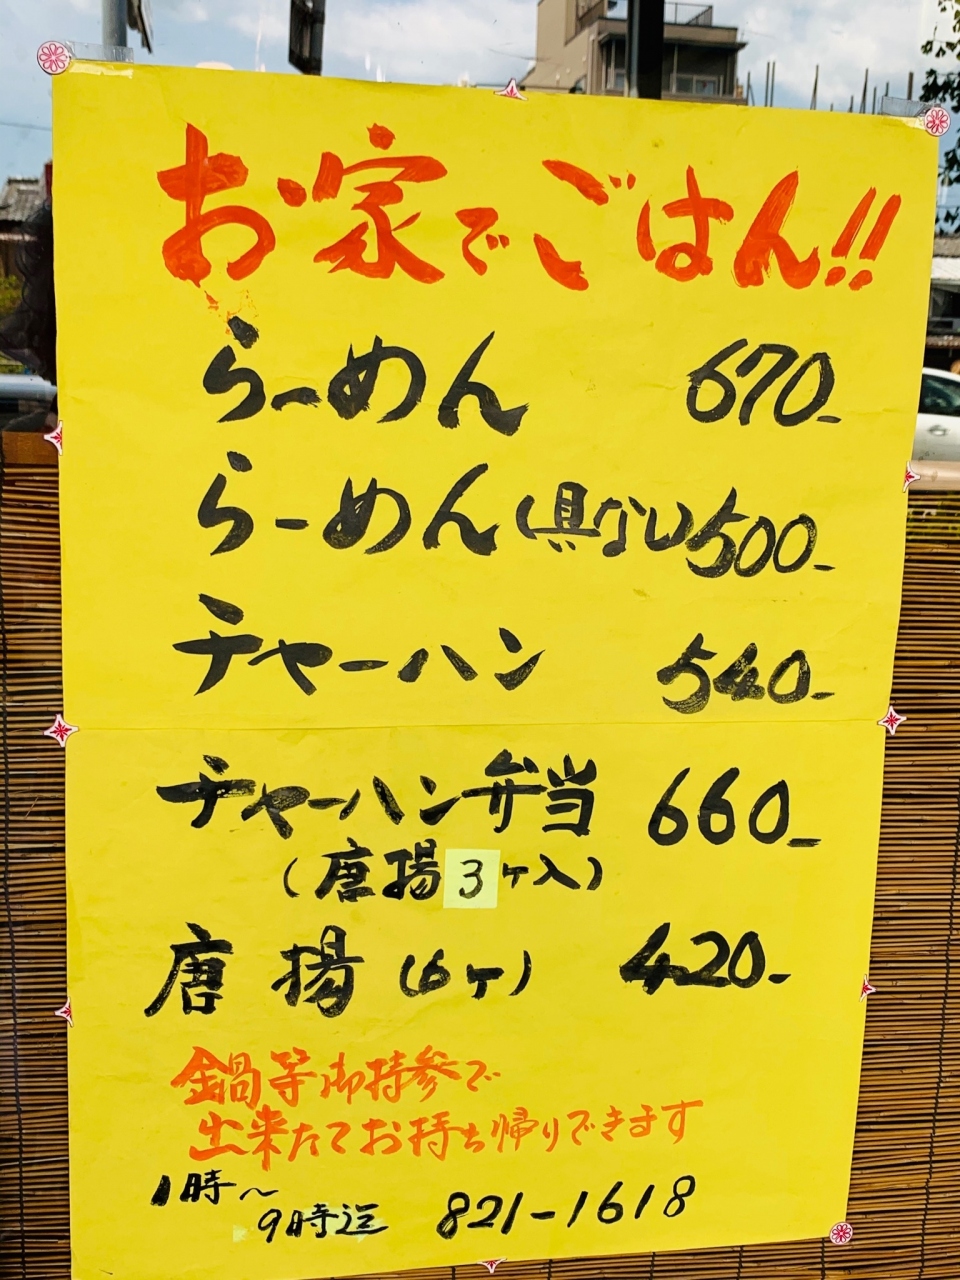 お家でごはん!!
らーめん 670-
らーめん(具なし) 500-
チャーハン 540-
チャーハン弁当 660-
(唐揚3ヶ入)
唐揚(6ヶ) 420-
鍋等御持参で
出来たてお持ち帰りできます
1時〜
9時迄 821-1618